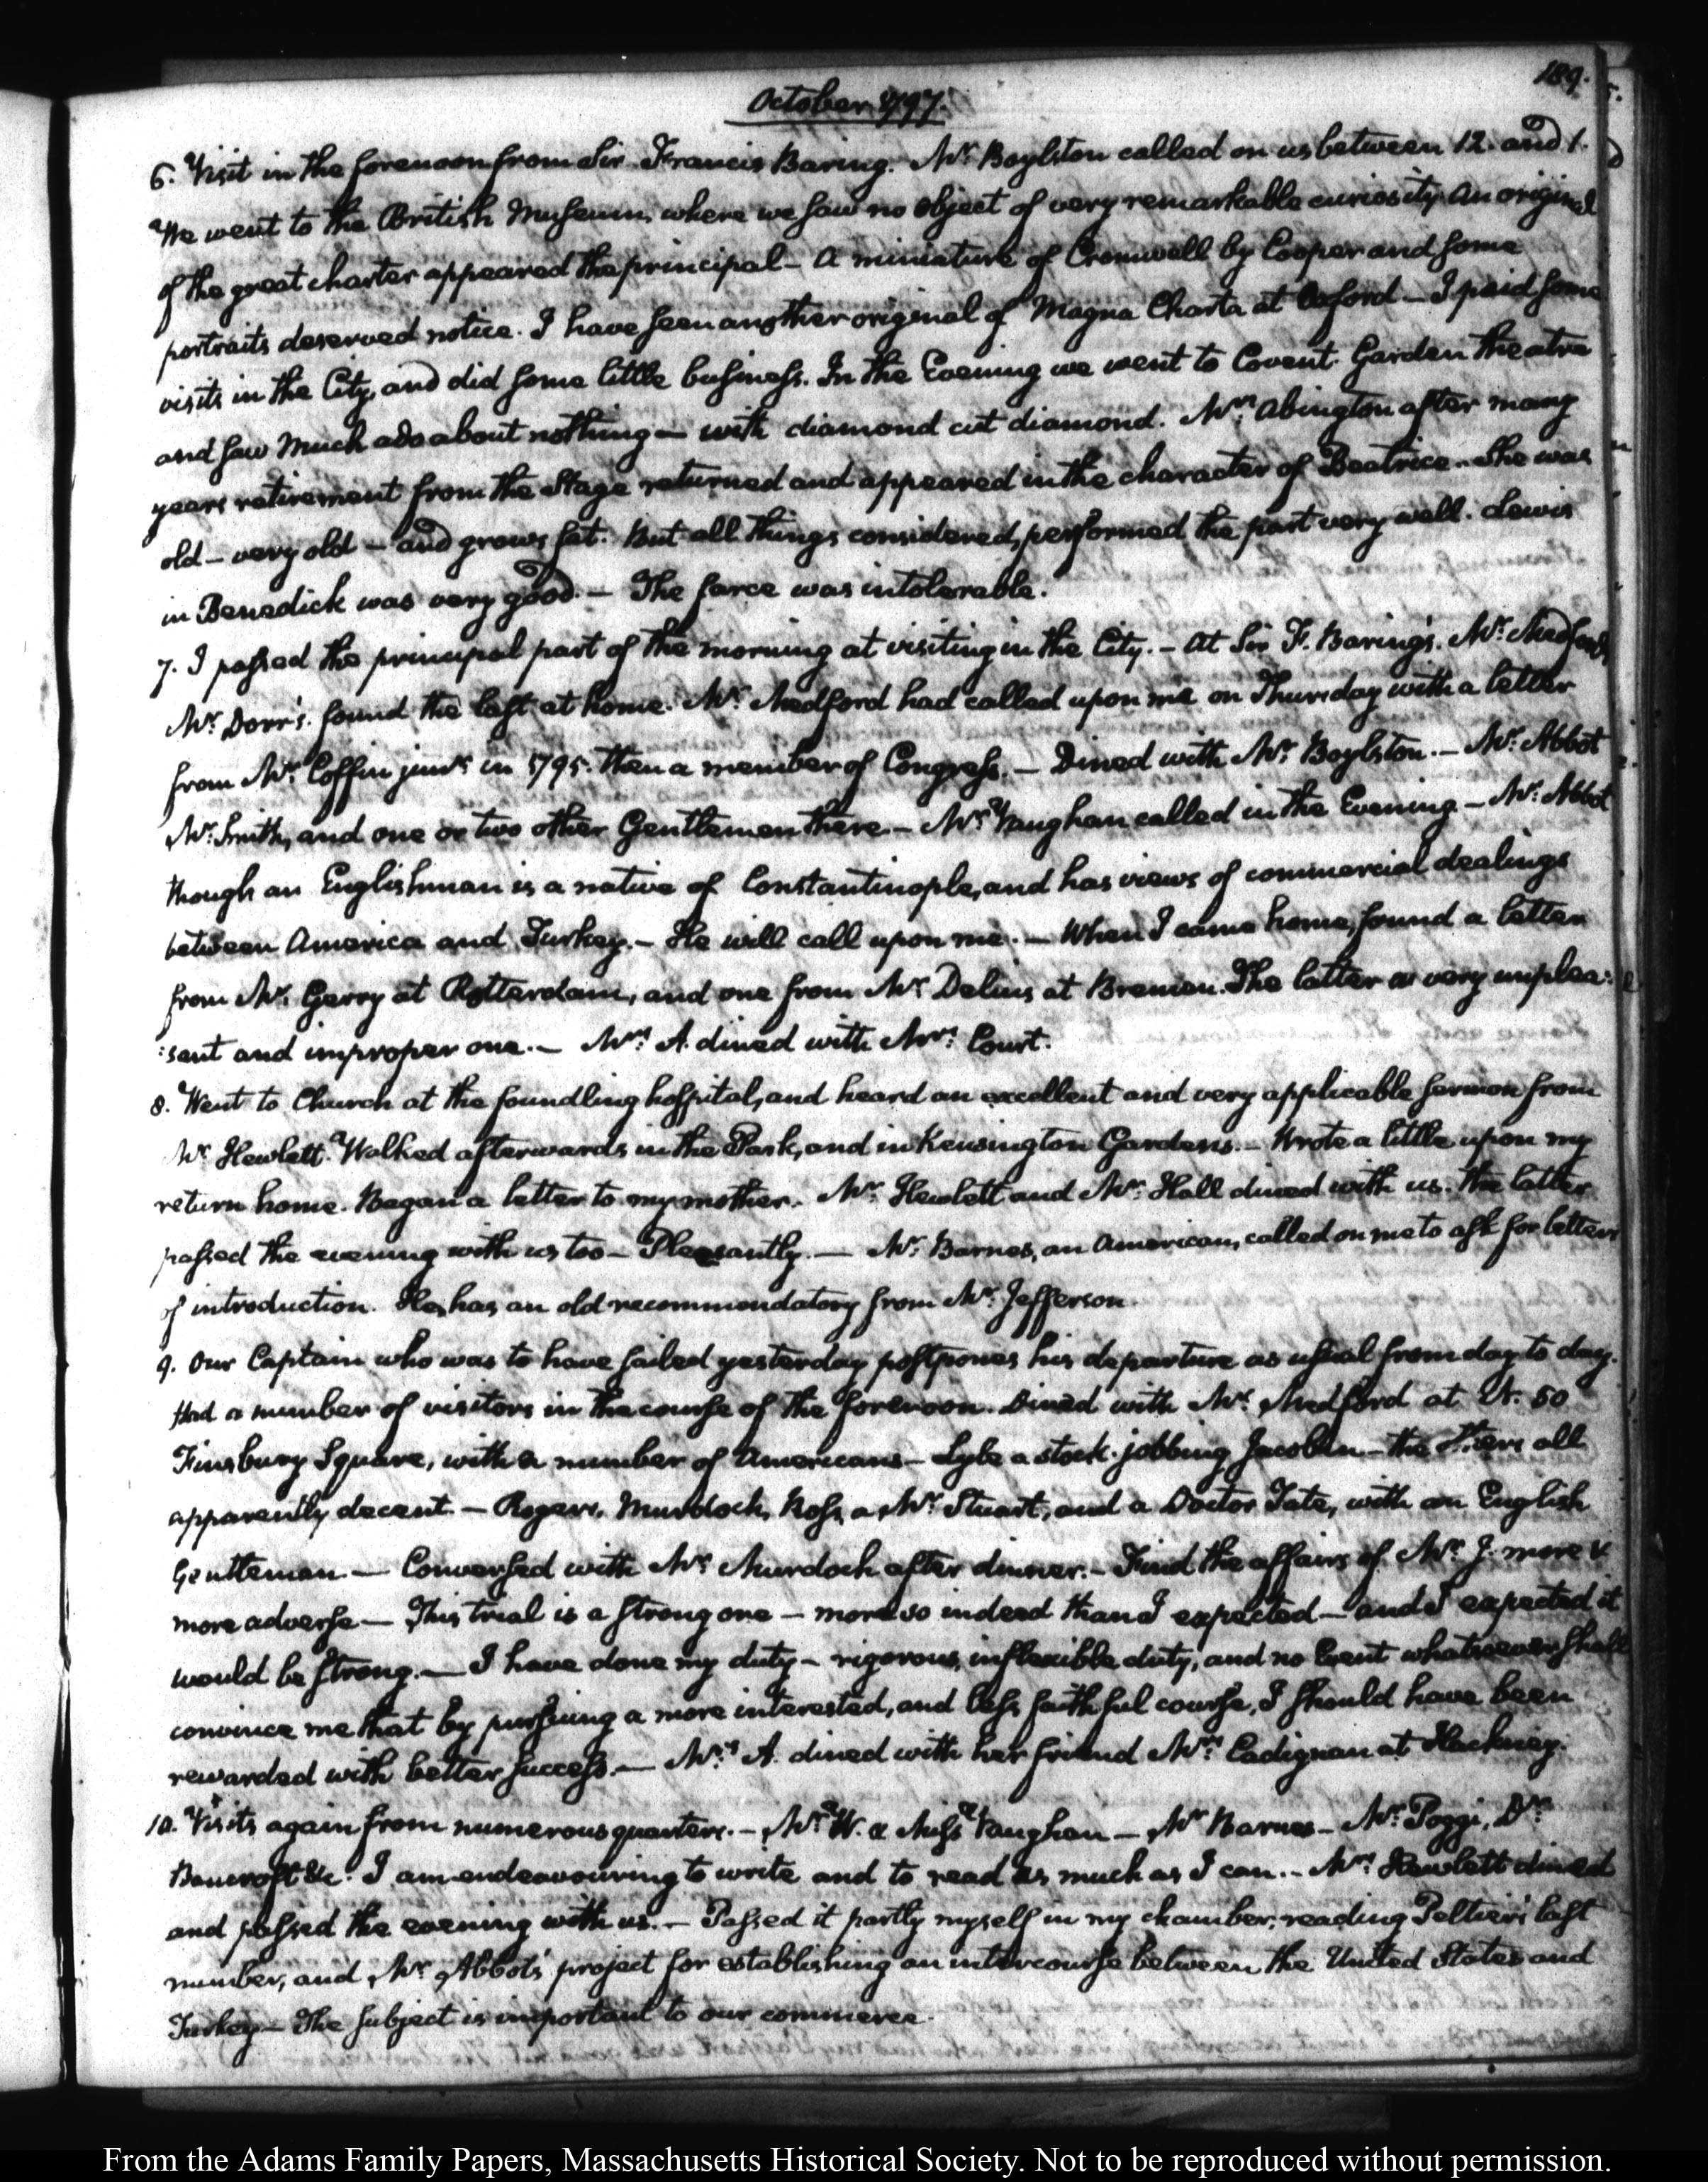 189.
October 1797.
6. Visit in the forenoon from Sir Francis Baring. Mr. Boylston called on us between 12. and 1.
We went to the British Museum, where we saw no object of very remarkable curiosity. An original
of the great charter appeared the principal— A miniature of Cromwell by Cooper and some
portraits deserved notice. I have seen another original of Magna Charta at Oxford— I paid some
visits in the City, and did some little business. In the Evening we went to Covent Garden theatre
and saw Much ado about nothing— with diamond cut diamond. Mrs. Abington after many
years retirement from the Stage returned and appeared in the character of Beatrice. She was
old— very old— and grows fat. But all things considered, performed the part very well. Lewis
in Benedick was very good.— The farce was intolerable.
7. I passed the principal part of the morning at visiting in the City.— At Sir F. Baring's. Mr. Medford's
Mr. Dorr's. found the last at home. Mr. Medford had called upon me on Thursday with a letter
from Mr. Coffin junr. in 1795. then a member of Congress.— Dined with Mr. Boylston.— Mr. Abbot
Mr. Smith, and one or two other Gentlemen there.— Mr. Vaughan called in the Evening— Mr. Abbot
though an Englishman is a native of Constantinople, and has views of commercial dealings
between America and Turkey.— He will call upon me.— When I came home, found a letter
from Mr. Gerry at Rotterdam, and one from Mr. Delius at Bremen. The latter a very unplea:
:sant and improper one.— Mrs. A. dined with Mrs. Court.
8. Went to Church at the foundling hospital, and heard an excellent and very applicable sermon from
Mr. Hewlett. Walked afterwards in the Park, and in Kensington Gardens.— Wrote a little upon my
return home. Began a letter to my mother. Mr. Hewlett and Mr. Hall dined with us. The latter
passed the evening with us too— Pleasantly.— Mr. Barnes, an American, called on me to ask for letters
of introduction. He has an old recommendatory from Mr. Jefferson.
9. Our Captain who was to have sailed yesterday postpones his departure as usual from day to day.
Had a number of visitors in the course of the forenoon. Dined with Mr. Medford at N. 50
Finsbury Square, with a number of Americans— Lyle a stock-jobbing Jacobin— the others all
apparently decent— Rogers, Murdoch, Ross, a Mr. Stuart, and a Doctor Tate, with an English
Gentleman.— Conversed with Mr. Murdoch after dinner.— Find the affairs of Mr. J. more &
more adverse— This trial is a strong one— more so indeed than I expected— and I expected it
would be strong.— I have done my duty— rigorous, inflexible duty, and no Event whatsoever shall
convince me that by pursuing a more interested, and less faithful course, I should have been
rewarded with better success.— Mrs. A. dined with her friend Mrs. Cadignan at Hackney.
10. Visits again from numerous quarters.— Mr. W. & Miss Vaughan— Mr Barnes— Mr. Poggi, Dr.
Bancroft &c. I am endeavouring to write and to read as much as I can.— Mrs. Hewlett dined
and passed the evening with us.— Passed it partly myself in my chamber, reading Peltier's last
number, and Mr. Abbot's project for establishing an intercourse between the United States and
Turkey— The subject is important to our commerce.
From the Adams Family Papers, Massachusetts Historical Society. Not to be reproduced without permission.